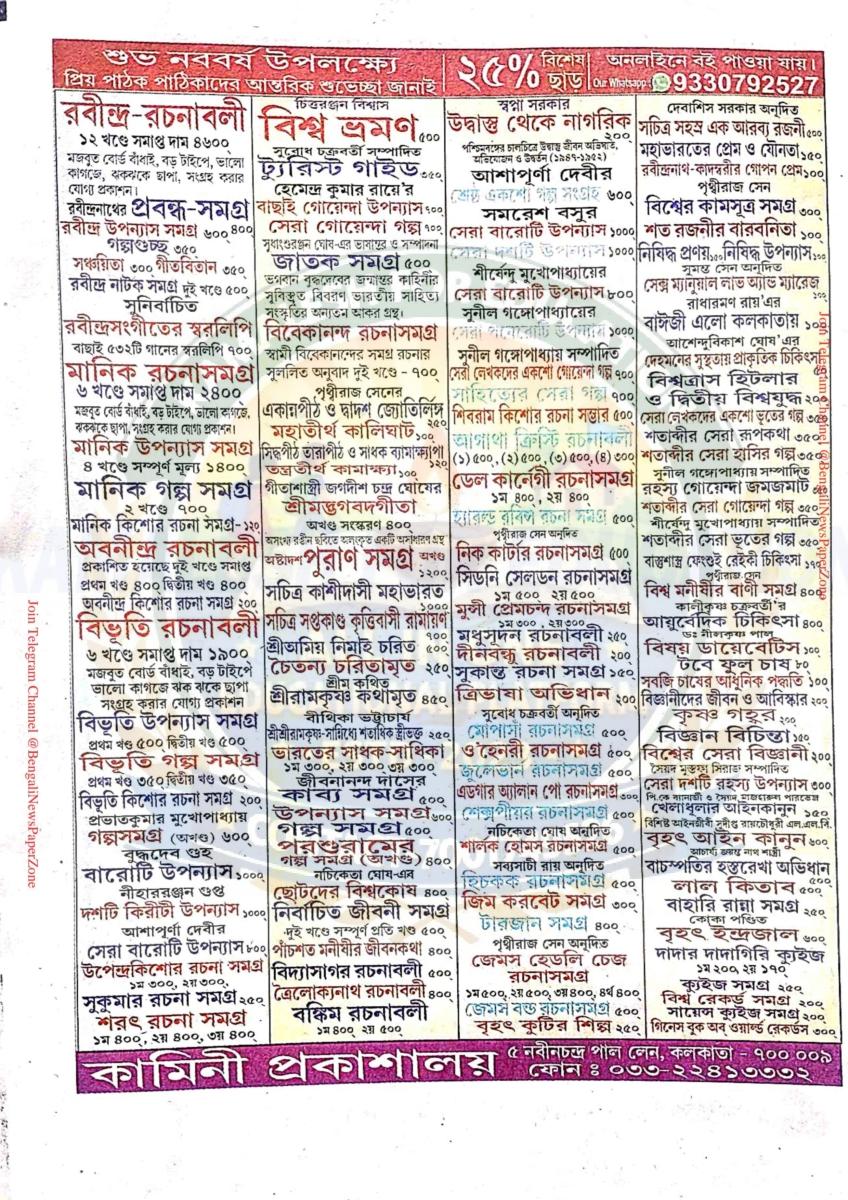 শুভ নববর্ষ উপলক্ষ্যে
প্রিয় পাঠক পাঠিকাদের আন্তরিক শুভেচ্ছা জানাই
২৫% বিশেষ ছাড়
অনলাইনে বই পাওয়া যায়।
Our Whatsapp: 9330792527
রবীন্দ্র-রচনাবলী
১২ খণ্ডে সমাপ্ত দাম ৪৬০০
মজবুত বোর্ড বাঁধাই, বড় টাইপে, ভালো
কাগজে, ঝকঝকে ছাপা, সংগ্রহ করার
যোগ্য প্রকাশন।
রবীন্দ্রনাথের প্রবন্ধ-সমগ্র
রবীন্দ্র উপন্যাস সমগ্র ৬০০ ৪০০
গল্পগুচ্ছ ৩৫০
সঞ্চয়িতা ৩০০ গীতবিতান ৩৫০
রবীন্দ্র নাটক সমগ্র দুই খণ্ডে ৫০০
সুনির্বাচিত
রবীন্দ্রসংগীতের স্বরলিপি
বাছাই ৫৩২টি গানের স্বরলিপি ৭০০
মানিক রচনাসমগ্র
৬ খণ্ডে সমাপ্ত দাম ২৪০০
মজবুত বোর্ড বাঁধাই, বড় টাইপে, ভালো কাগজে,
ঝকঝকে ছাপা, সংগ্রহ করার যোগ্য প্রকাশন।
মানিক উপন্যাস সমগ্র
৪ খণ্ডে সম্পূর্ণ মূল্য ১৪০০
মানিক গল্প সমগ্র
২ খণ্ডে ৭০০
মানিক কিশোর রচনা সমগ্র-১২০
অবনীন্দ্র রচনাবলী
প্রকাশিত হয়েছে দুই খণ্ডে সমাপ্ত
প্রথম খণ্ড ৪০০ দ্বিতীয় খণ্ড ৪০০
অবনীন্দ্র কিশোর রচনা সমগ্র ২০০
বিভূতি রচনাবলী
৬ খণ্ডে সমাপ্ত দাম ১৯০০
মজবুত বোর্ড বাঁধাই, বড় টাইপে
ভালো কাগজে ঝক ঝকে ছাপা
সংগ্রহ করার যোগ্য প্রকাশন
বিভূতি উপন্যাস সমগ্র
প্রথম খণ্ড ৫০০ দ্বিতীয় খণ্ড ৫০০
বিভূতি গল্প সমগ্র
প্রথম খণ্ড ৩৫০ দ্বিতীয় খণ্ড ৩৫০
বিভূতি কিশোর রচনা সমগ্র ২০০
প্রভাতকুমার মুখোপাধ্যায়
গল্পসমগ্র (অখণ্ড) ৬০০
বুদ্ধদেব গুহ
বারোটি উপন্যাস ১০০০
নীহাররঞ্জন গুপ্ত
দশটি কিরীটী উপন্যাস ১০০০
আশাপূর্ণা দেবীর
সেরা বারোটি উপন্যাস ৮০০
উপেন্দ্রকিশোর রচনা সমগ্র
১ম ৩০০, ২য় ৩০০,
সুকুমার রচনা সমগ্র ২৫০
শরৎ রচনা সমগ্র
১ম ৪০০, ২য় ৪০০, ৩য় ৪০০
চিত্তরঞ্জন বিশ্বাস
বিশ্ব ভ্রমণ ৫০০
সুবোধ চক্রবর্তী সম্পাদিত
ট্যুরিস্ট গাইড ৩৫০
হেমেন্দ্র কুমার রায়ে'র
বাছাই গোয়েন্দা উপন্যাস ৭০০
সেরা গোয়েন্দা গল্প ৭০০
সুধাংশুরঞ্জন ঘোষ-এর ভাষান্তর ও সম্পাদনা
জাতক সমগ্র ৫০০
ভগবান বুদ্ধদেবের জন্মান্তর কাহিনীর
সুবিস্তৃত বিবরণ ভারতীয় সাহিত্য
সংস্কৃতির অন্যতম আকর গ্রন্থ।
বিবেকানন্দ রচনাসমগ্র
স্বামী বিবেকানন্দের সমগ্র রচনার
সুললিত অনুবাদ দুই খণ্ডে - ৭০০
পৃথ্বীরাজ সেনের
একান্নপীঠ ও দ্বাদশ জ্যোতির্লিঙ্গ ২৫০
মহাতীর্থ কালিঘাট ১০০
সিদ্ধপীঠ তারাপীঠ ও সাধক ব্যামাক্ষ্যাপা ১২০
তন্ত্রতীর্থ কামাক্ষ্যা ১০০
গীতাশাস্ত্রী জগদীশ চন্দ্র ঘোষের
শ্রীমদ্ভগবদগীতা
অখণ্ড সংস্করণ ৪০০
অসংখ্য রঙীন ছবিতে অলংকৃত একটি অসাধারণ গ্রন্থ
অষ্টাদশ পুরাণ সমগ্র অখণ্ড ১২০০
সচিত্র কাশীদাসী মহাভারত ১০০০
সচিত্র সপ্তকাণ্ড কৃত্তিবাসী রামায়ণ ৭০০
শ্রীঅমিয় নিমাই চরিত ৫০০
চৈতন্য চরিতামৃত ২৫০
শ্রীম কথিত
শ্রীরামকৃষ্ণ কথামৃত ৪৫০
বীথিকা ভট্টাচার্য
শ্রীশ্রীরামকৃষ্ণ-সান্নিধ্যে শতাধিক স্ত্রীভক্ত ২৫০
ভারতের সাধক-সাধিকা
১ম ৩০০, ২য় ৩০০ ৩য় ৩০০
জীবনানন্দ দাসের
কাব্য সমগ্র ৫০০
উপন্যাস সমগ্র ৬০০
গল্প সমগ্র ৫০০
পরশুরামের
গল্প সমগ্র (অখণ্ড) ৪০০
নচিকেতা ঘোষ-এর
ছোটদের বিশ্বকোষ ৪০০
নির্বাচিত জীবনী সমগ্র
দুই খণ্ডে সম্পূর্ণ প্রতি খণ্ড ৫০০
পাঁচশত মনীষীর জীবনকথা ৪০০
বিদ্যাসাগর রচনাবলী ৫০০
ত্রৈলোক্যনাথ রচনাবলী ৪০০
বঙ্কিম রচনাবলী
১ম ৪০০, ২য় ৫০০
স্বপ্না সরকার
উদ্বাস্তু থেকে নাগরিক ২০০
পশ্চিমবঙ্গের চালচিত্রে উদ্বাস্তু জীবন অভিঘাত,
অভিযোজন ও উত্তরণ (১৯৪৭-১৯৫২)
আশাপূর্ণা দেবীর
শ্রেষ্ঠ একশো গল্প সংগ্রহ ৬০০
সমরেশ বসুর
সেরা বারোটি উপন্যাস ১০০০
সেরা দশটি উপন্যাস ১০০০
শীর্ষেন্দু মুখোপাধ্যায়ের
সেরা বারোটি উপন্যাস ৮০০
সুনীল গঙ্গোপাধ্যায়ের
সেরা পনেরোটি উপন্যাস ১০০০
সুনীল গঙ্গোপাধ্যায় সম্পাদিত
সেরা লেখকদের একশো গোয়েন্দা গল্প ৭০০
সাহিত্যের সেরা গল্প ৭০০
শিবরাম কিশোর রচনা সম্ভার ৫০০
আগাথা ক্রিস্টি রচনাবলী
(১) ৫০০, (২) ৫০০, (৩) ৫০০, (৪) ৩০০
ডেল কার্নেগী রচনাসমগ্র
১ম ৪০০, ২য় ৪০০
হ্যারল্ড রবিন্স রচনা সমগ্র ৫০০
পৃথ্বীরাজ সেন অনূদিত
নিক কার্টার রচনাসমগ্র ৫০০
সিডনি সেলডন রচনাসমগ্র
১ম ৫০০, ২য় ৫০০
মুন্সী প্রেমচন্দ রচনাসমগ্র
১ম ৩০০, ২য় ৩০০
মধুসূদন রচনাবলী ২৫০
দীনবন্ধু রচনাবলী ২০০
সুকান্ত রচনা সমগ্র ১৫০
ত্রিভাষা অভিধান ২০০
সুবোধ চক্রবর্তী অনূদিত
মোপাসাঁ রচনাসমগ্র ৫০০
ও'হেনরী রচনাসমগ্র ৫০০
জুলেভার্ন রচনাসমগ্র ৫০০
এডগার অ্যালান পো রচনাসমগ্র ৩০০
শেক্সপীয়র রচনাসমগ্র ৫০০
নচিকেতা ঘোষ অনূদিত
শার্লক হোমস রচনাসমগ্র ৫০০
সব্যসাচী রায় অনূদিত
হিচকক রচনাসমগ্র ৫০০
জিম করবেট সমগ্র ৩০০
টারজান সমগ্র ৪০০
পৃথ্বীরাজ সেন অনূদিত
জেমস হেডলি চেজ
রচনাসমগ্র
১ম ৫০০, ২য় ৫০০, ৩য় ৪০০, ৪র্থ ৪০০
জেমস বন্ড রচনাসমগ্র ৫০০
বৃহৎ কুটির শিল্প ২৫০
দেবাশিস সরকার অনূদিত
সচিত্র সহস্র এক আরব্য রজনী ৫০০
মহাভারতের প্রেম ও যৌনতা ১৫০
রবীন্দ্রনাথ-কাদম্বরীর গোপন প্রেম ১০০
পৃথ্বীরাজ সেন
বিশ্বের কামসূত্র সমগ্র ৩০০
শত রজনীর বারবনিতা ১০০
নিষিদ্ধ প্রণয় ১৫০ নিষিদ্ধ উপন্যাস ১০০
সুমন্ত সেন অনূদিত
সেক্স ম্যানুয়াল লাভ অ্যান্ড ম্যারেজ ১০০
রাধারমণ রায়'এর
বাঈজী এলো কলকাতায় ১০০
আশেন্দুবিকাশ ঘোষ'এর
দেহমনের সুস্থতায় প্রাকৃতিক চিকিৎসা
বিশ্বত্রাস হিটলার
ও দ্বিতীয় বিশ্বযুদ্ধ ২০০
সেরা লেখকদের একশো ভূতের গল্প ৩৫০
শতাব্দীর সেরা রূপকথা ৩৫০
শতাব্দীর সেরা হাসির গল্প ৩৫০
সুনীল গঙ্গোপাধ্যায় সম্পাদিত
রহস্য গোয়েন্দা জমজমাটি
শতাব্দীর সেরা গোয়েন্দা গল্প ৩৫০
শীর্ষেন্দু মুখোপাধ্যায় সম্পাদিত
শতাব্দীর সেরা ভূতের গল্প ৩৫০
বাস্তুশাস্ত্র ফেংশুই রেইকী চিকিৎসা
পৃথ্বীরাজ সেন
বিশ্ব মনীষীর বাণী সমগ্র ৪০০
কালীকৃষ্ণ চক্রবর্তী'র
আয়ুর্বেদিক চিকিৎসা ৪০০
ডঃ নীলকৃষ্ণ পাল
বিষয় ডায়েবেটিস ১০০
টবে ফুল চাষ ৮০
সবজি চাষের আধুনিক পদ্ধতি ১০০
বিজ্ঞানীদের জীবন ও আবিষ্কার ২০০
কৃষ্ণ গহ্বর ২০০
বিজ্ঞান বিচিন্তা ১৫০
বিশ্বের সেরা বিজ্ঞানী ২০০
সৈয়দ মুস্তফা সিরাজ সম্পাদিত
সেরা দশটি রহস্য উপন্যাস ৩০০
খেলাধূলার আইনকানুন ১৫০
বৃহৎ আইন কানুন ৬০০
আচার্য জয়ন্ত নাথ শাস্ত্রী
বাচস্পতির হস্তরেখা অভিধান
লাল কিতাব ৫০০
বাহারি রান্না সমগ্র ২৫০
কোকা পণ্ডিত
বৃহৎ ইন্দ্রজাল ৬০০
দাদার দাদাগিরি কুইজ
১ম ২০০, ২য় ১৭০
কুইজ সমগ্র ২৫০
বিশ্ব রেকর্ড সমগ্র ২০০
সায়েন্স কুইজ সমগ্র ২০০
গিনেস বুক অব্ ওয়ার্ল্ড রেকর্ডস ৩০০
কামিনী প্রকাশালয়
৫ নবীনচন্দ্র পাল লেন, কলকাতা - ৭০০ ০০৯
ফোন : ০৩৩-২২৪১৩৩৩২
Join Telegram Channel @BengaliNewsPaperZone
Join Telegram Channel @BengaliNewsPaperZone